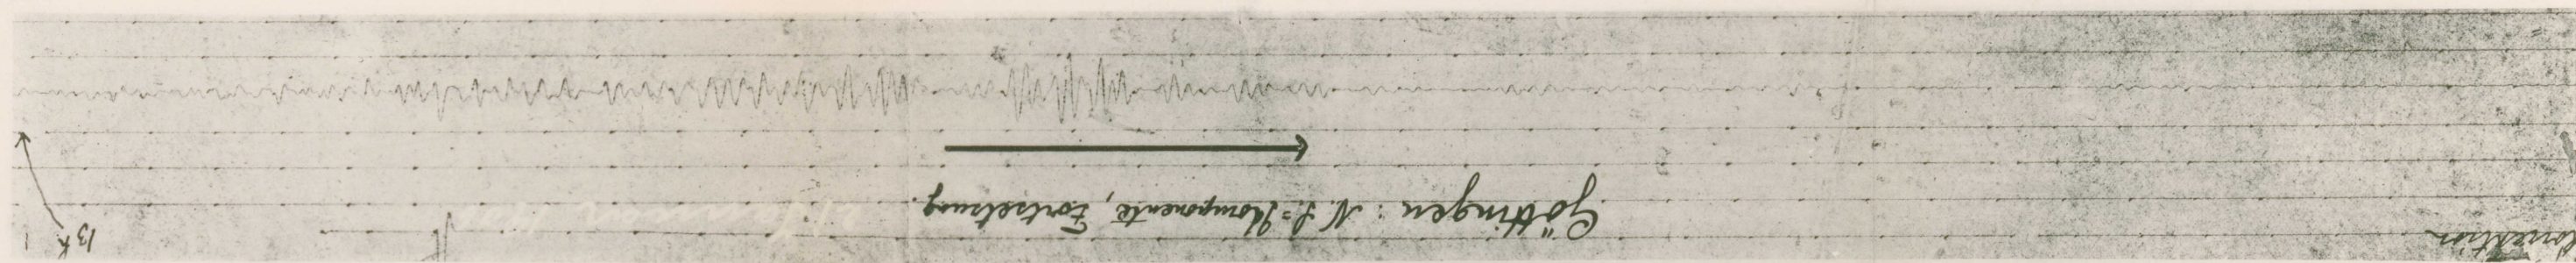 Göttingen: N. S.=Komponente, Fortsetzung.
13 h